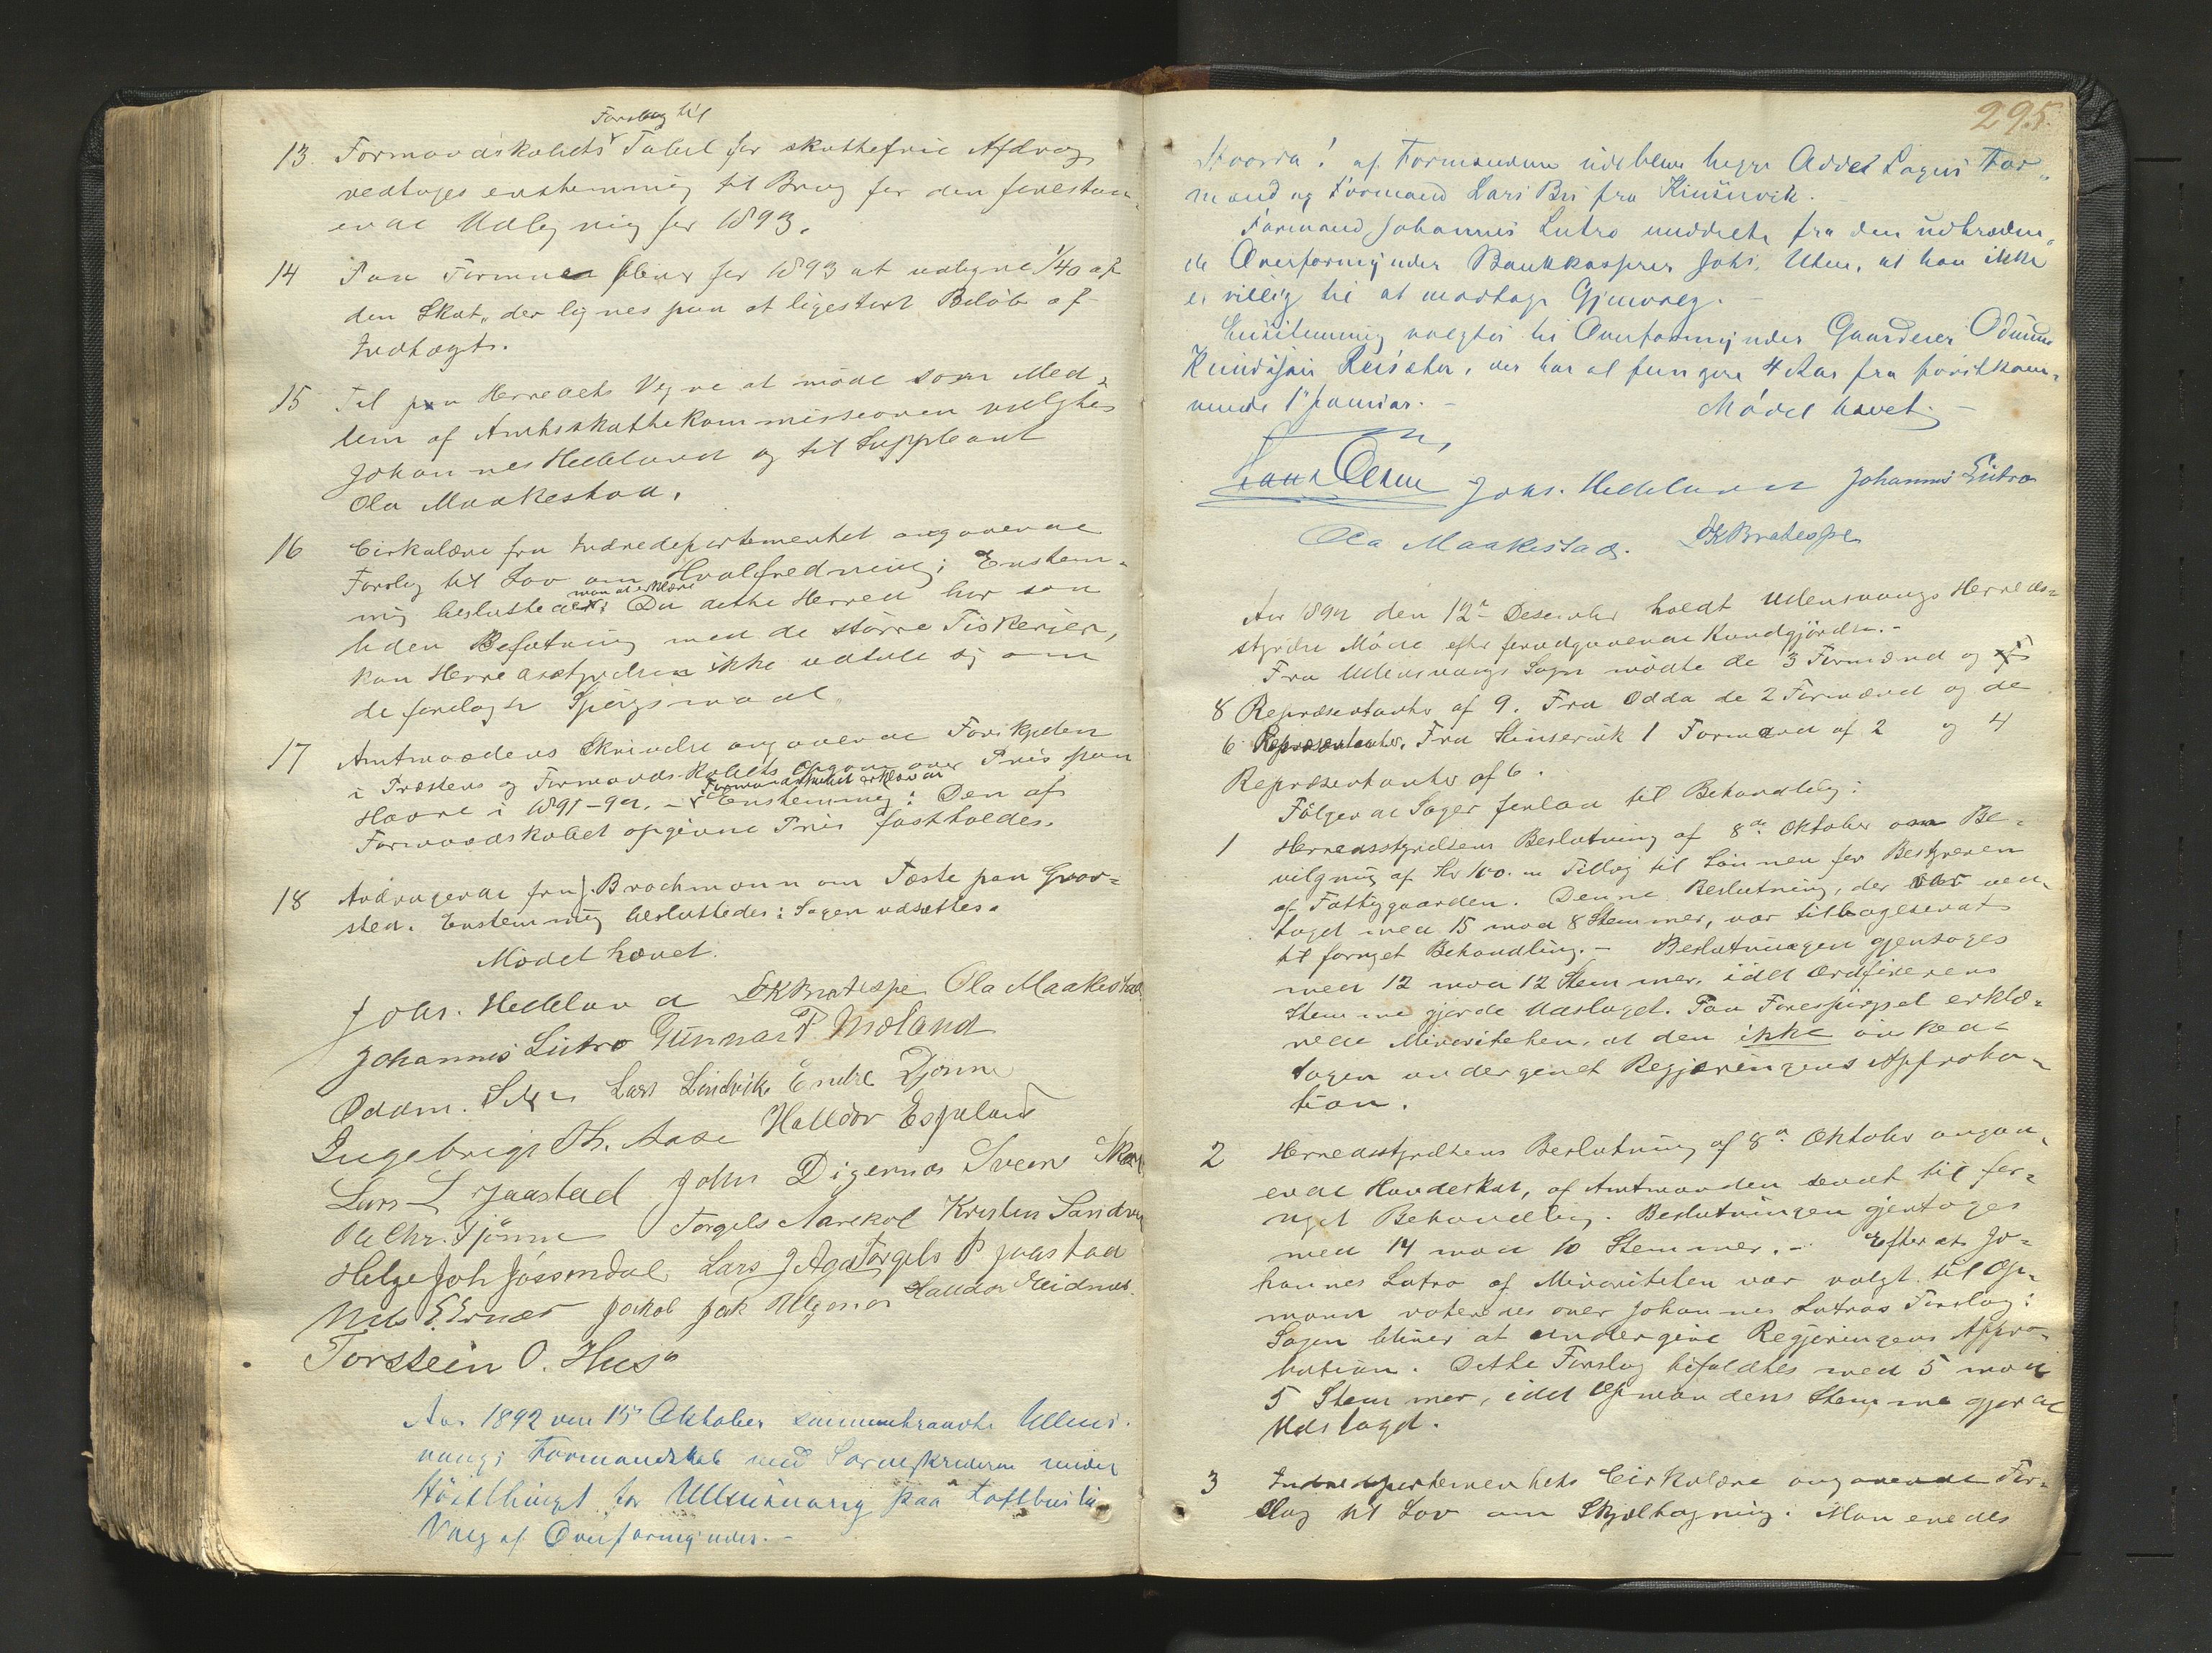 Forslag til
13. Formandskabets Tabel for skattefrie Afdrag
vedtoges enstemmig til Brug for den forestaa-
ende Udligning for 1893.
14 Paa Formue bliver for 1893 at udligne 1/40 af
den Skat, der lignes paa et ligestort Beløb af
Indtægt.
15 Til paa Herredets Vegne at møde som Med-
lem af Amtsskattekommissionen valgtes
Johannes Helleland og til Suppleant
Ola Maakestad.
16 Cirkulære fra Indredepartementet angaaende
Forslag til Lov om Hvalfredning; Enstem-
man at erklære
mig besluttedes: Da dette Herred har saa
liden Befatning med de større Fiskerier,
kan Herredsstyrelsen ikke udtale sig om
de forelagte Spørgsmaal.
17 Amtmandens Skrivelse angaaende Forskjellen
i Præstens og Formandskabets Opgave over Pris paa
Formandskabet erklærede
Havre i 1891-92. - Enstemmig: Den af
Formandskabet opgivne Pris fastholdes.
18 Andragende fra J. Brochmann om Fæste paa
sted. Enstemmig besluttedes: Sagen udsættes.
Mødet hævet.
Johs. Helleland DKBratespe Ola Maakestad
Johannes Lutro Gunnar P. Mæland
Oddm. Lars Lindvik Endre Djønne
Ingebrigt Th. Aase Halldor Espeland
Lars L Jaastad John Digernes Svein
Ole Chr. Djønne Torgils Aarekol Kristen Sandven
Helge Joh Jøssendal Lars J Aga Torgils P Jaastad
Nils S. Ernes Jakob Jak Halldor Eidnes.
Torstein O. Hus
Aar 1892 den 15de Oktober sammentraadte Ullens-
vangs Formandskab med Sorenskriveren under
Høstthinget for Ullensvang paa Lofthus til
Valg af Overformynder. -
295.
af Formændene udebleve begge Odda Sogns For-
mænd og Formand Lars Bu fra Kinservik.
Formand Johannes Lutro meddelte fra den udtræden-
de Overformynder Bankkasserer Johs. Utne, at han ikke
er villig til at modtage Gjenvalg. -
Enstemmig valgtes til Overformynder Gaardeier Odmund
Knudsen Reisæter, der har at fungere 4 Aar fra førstkom-
mende 1ste Januar. - Mødet hævet. -
Johs. Helleland Johannes Lutro
Ola Maakestad. DKBratespe
Aar 1892 den 12te Desember holdt Ullensvangs Herreds-
styrelse Møde efter forudgaaende Kundgjørelse. -
Fra Ullensvangs Sogn mødte de 3 Formænd og
8 Repræsentanter af 9. Fra Odda de 2 Formænd og de
6 Repræsentanter. Fra Kinservik 1 Formand af 2 og 4
Repræsentanter af 6.
Følgende Sager forlaa til Behandling:
1 Herredsstyrelsens Beslutning af 8de Oktober om Be-
vilgning af Kr 100.00 Tillæg til Lønnen for Bestyreren
af Fattiggaarden. Denne Beslutning, der var ved-
taget med 15 mod 8 Stemmer, var tilbagesendt
til fornyet Behandling. - Beslutningen gjentoges
med 12 mod 12 Stemmer, idet Ordførerens
Stemme gjorde Udslaget. Paa Forespørgsel erklæ-
rede Minoriteten, at den ikke ønskede
Sagen undergivet Regjeringens Approba-
tion.
2 Herredsstyrelsens Beslutning af 8de Oktober angaa-
ende Hundeskat, af Amtmanden sendt til for-
nyet Behandling. Beslutningen gjentoges
med 14 mod 10 Stemmer. - Efter at Jo-
hannes Lutro af Minoriteten var valgt til Op-
mann voteredes over Johannes Lutros Forslag:
Sagen bliver at undergive Regjeringens Appro-
bation. Dette Forslag bifaldtes med 5 mod
5 Stemmer, idet Opmandens Stemme gjorde
Udslaget.
3 Indredepartementets Cirkulære angaaende For-
slag til Lov om Skjeltagning. Man enedes